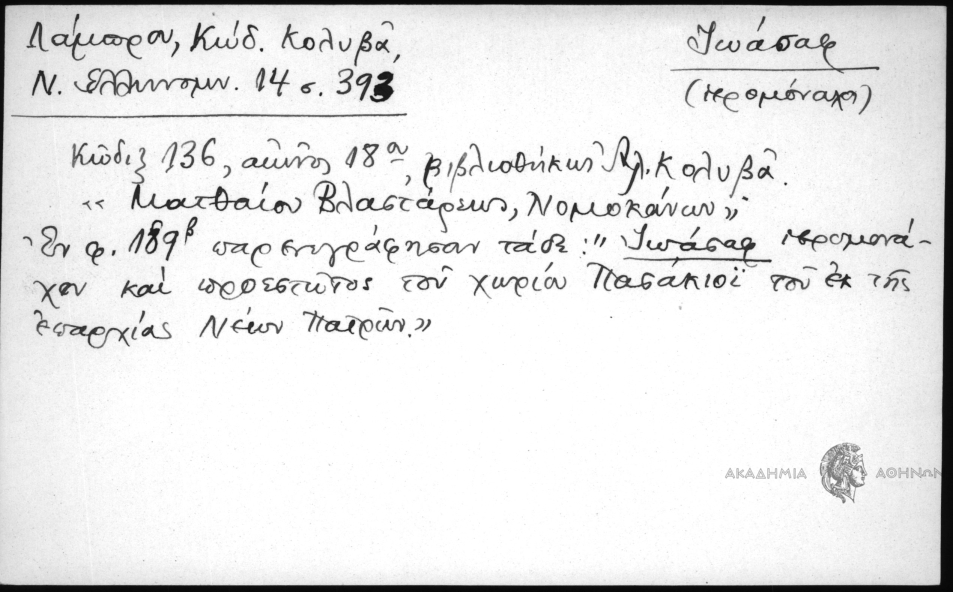 Λάμπρου, Κώδ. Κολυβᾶ,
Ν. Ἑλληνομν. 14 σ. 393
Ἰωάσαφ
(ἱερομόναχος)
Κῶδιξ 136, αἰῶνος 18ου, βιβλιοθήκης Ἀλ. Κολυβᾶ.
"Ματθαίου Βλαστάρεως, Νομοκάνων"
Ἐν φ. 189β παρενεγράφησαν τάδε: "Ἰωάσαφ ἱερομονά-
χου καὶ προεστῶτος τοῦ χωρίου Πασάκιοϊ τοῦ ἐκ τῆς
ἐπαρχίας Νέων Πατρῶν."
ΑΚΑΔΗΜΙΑ ΑΘΗΝΩΝ